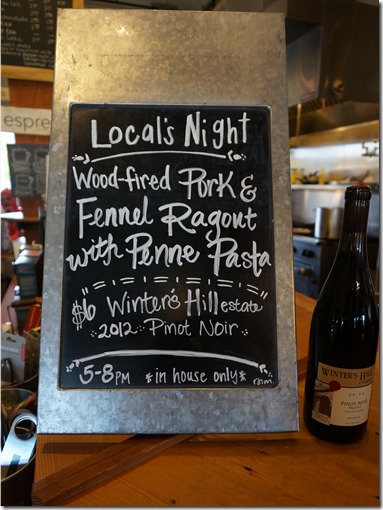 espre
Local's Night
Wood-fired Pork &
Fennel Ragout
with Penne Pasta
$6 Winter's Hill estate
2012 Pinot Noir
5-8PM *in house only*
WINTER'S HILL
PINOT NOIR